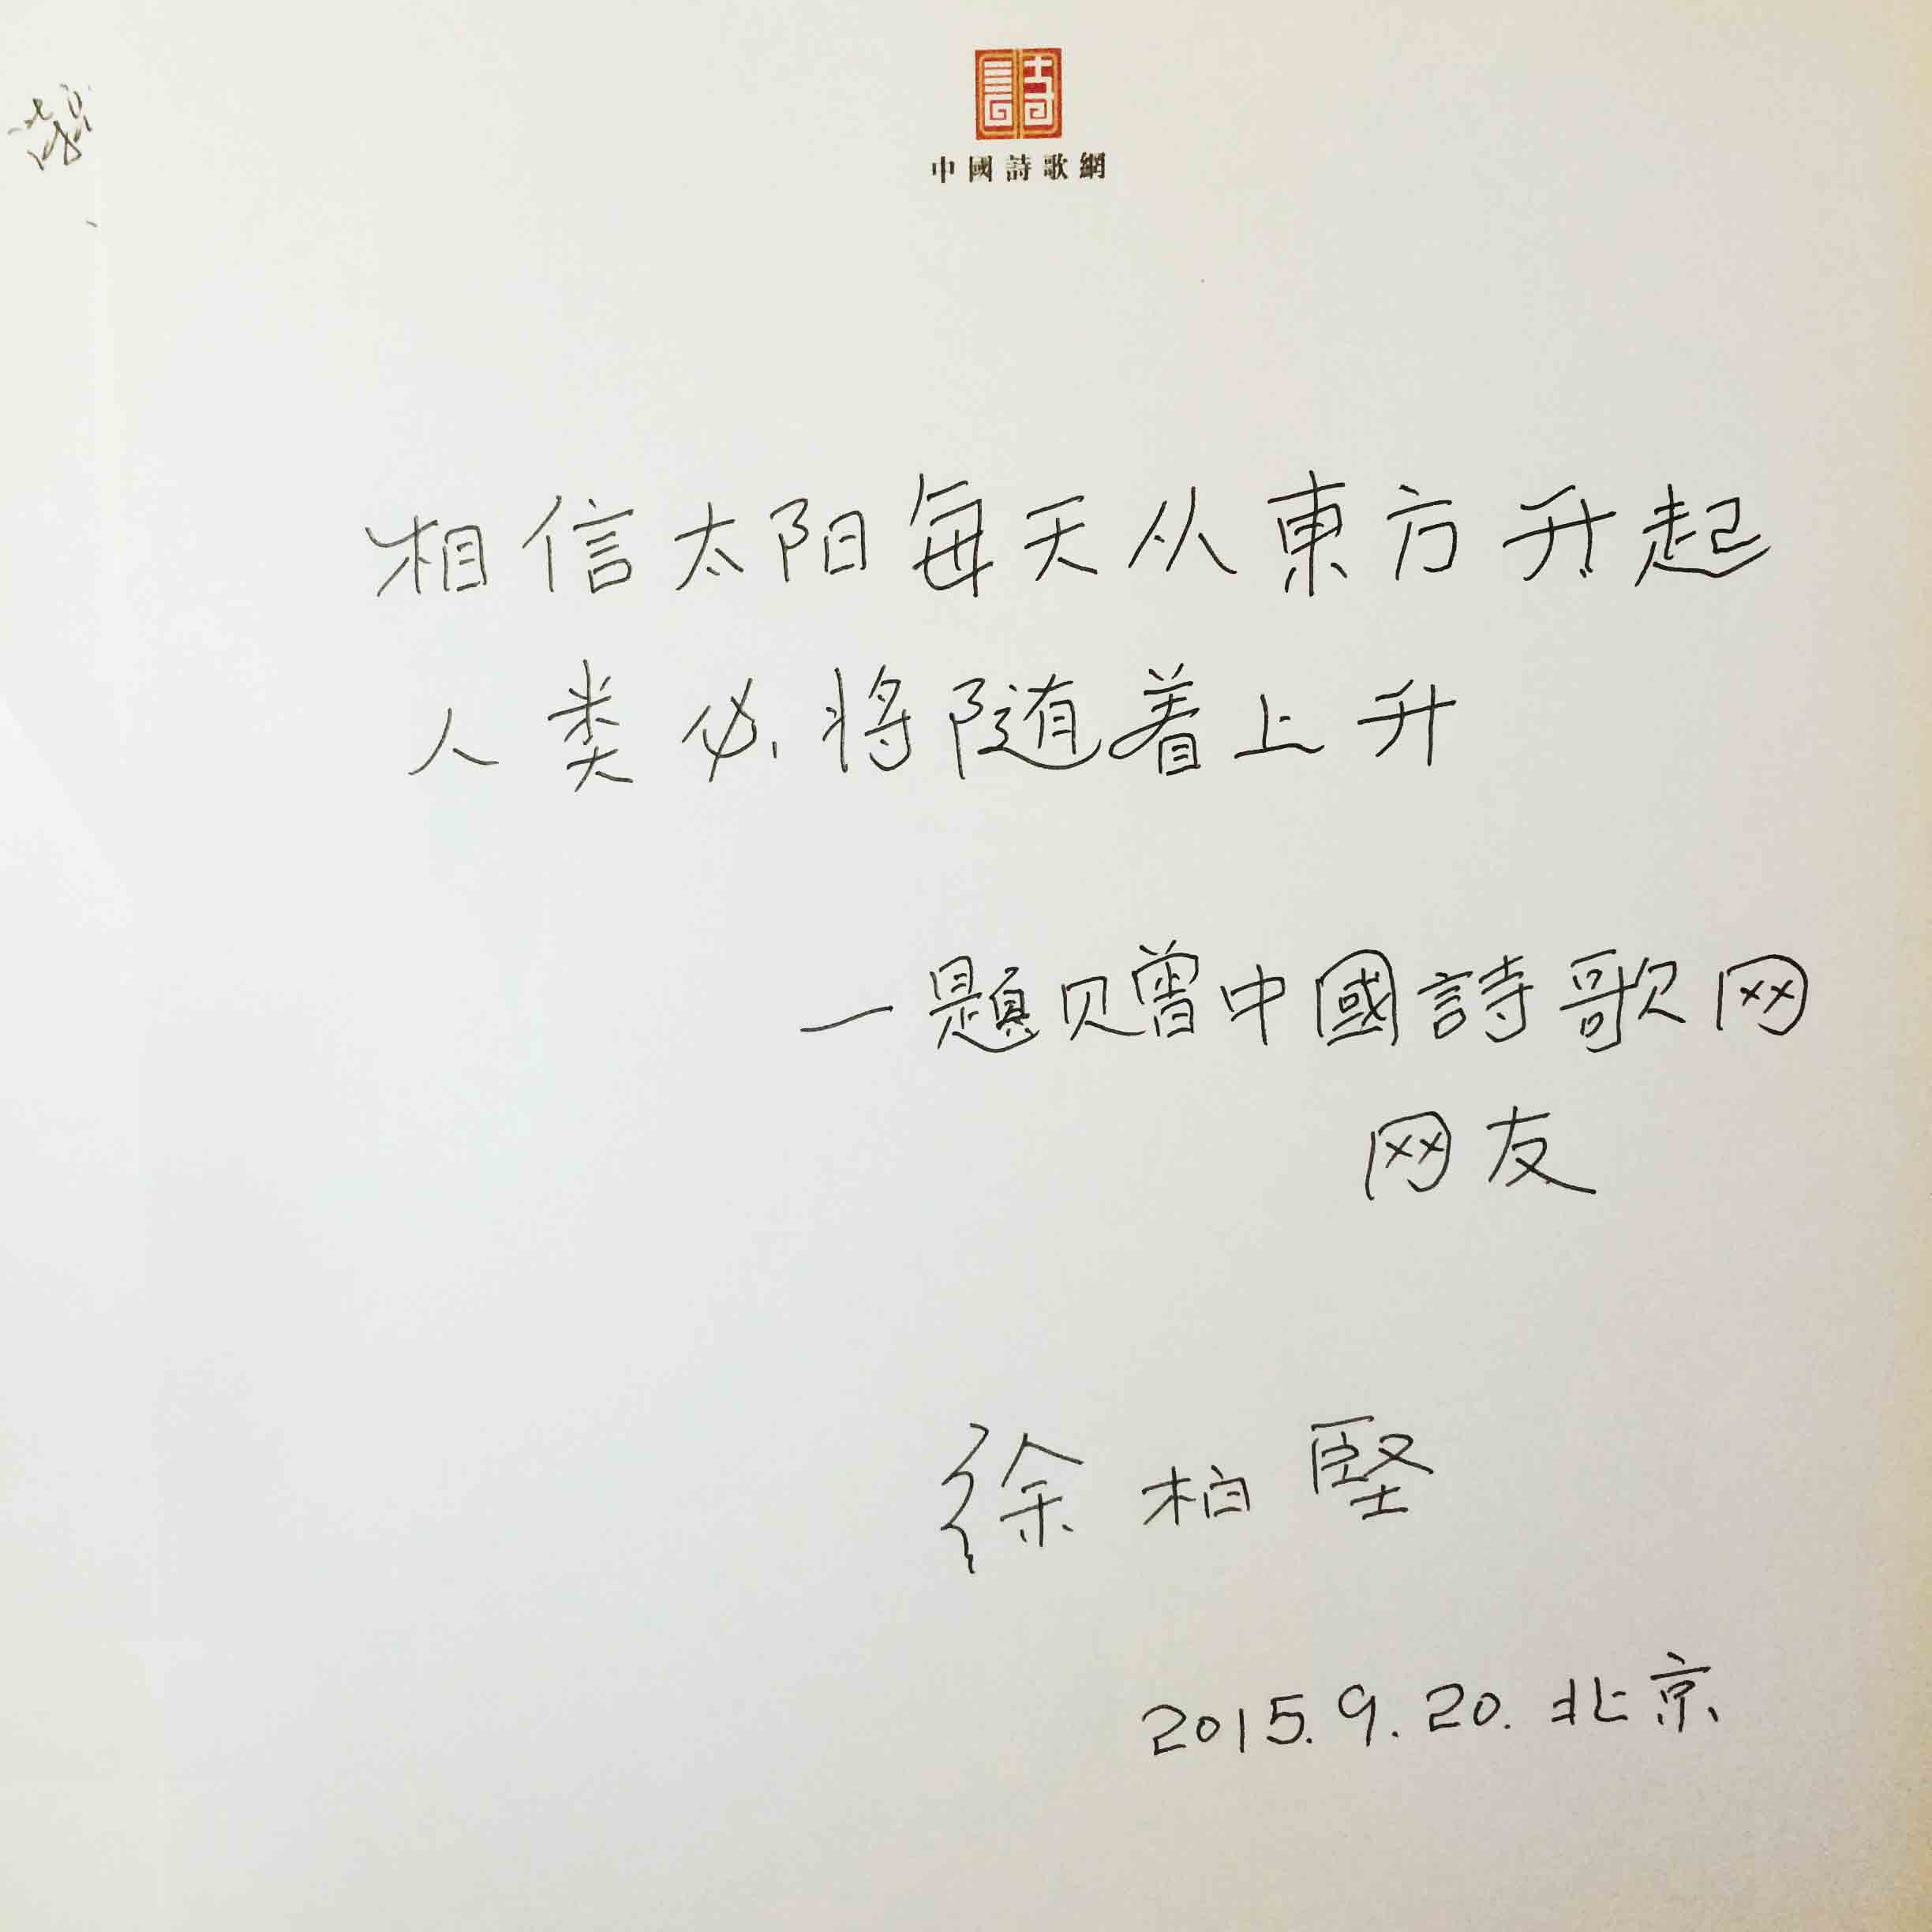 詩
中國詩歌網
相信太阳每天从東方升起
人类必将随着上升
一题赠中國詩歌网
网友
徐柏堅
2015.9.20.北京